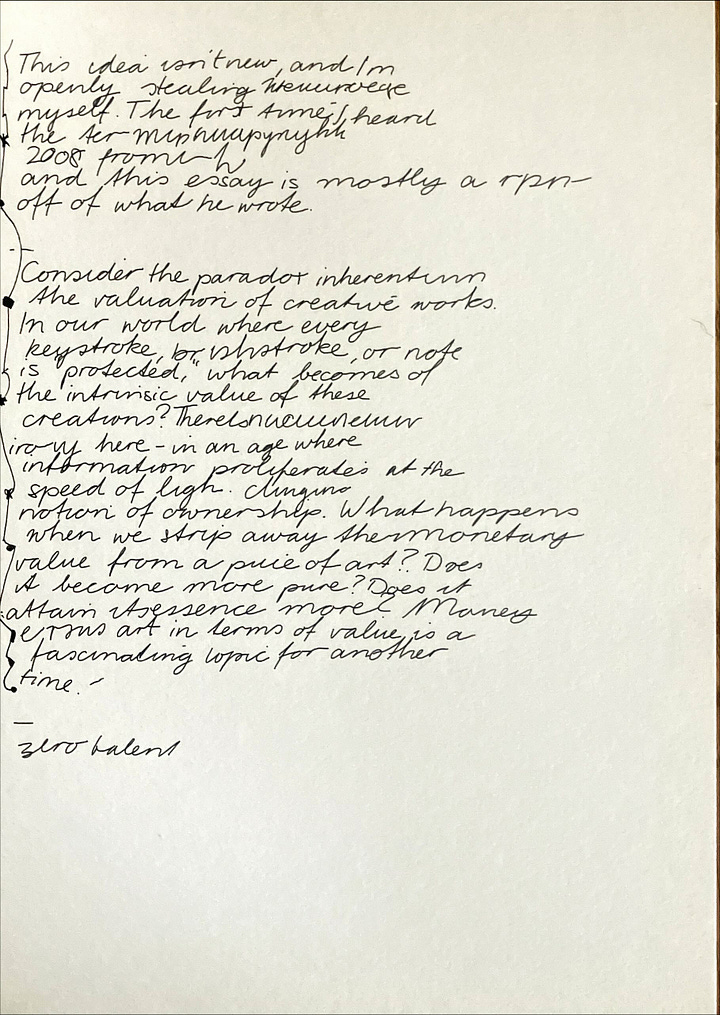 This idea isn't new, and I'm
openly stealing
myself. The first time I heard
the
2008 from
and this essay is mostly a
off of what he wrote.
Consider the paradox
the valuation of creative works.
In our world where every
keystroke, brushstroke, or note
is "protected," what becomes of
the intrinsic value of these
creations?
irony here - in an age where
information proliferates at the
speed of
notion of ownership. What happens
when we strip away the monetary
value from a piece of art? Does
it become more pure? Does it
attain its essence more? Money
art in terms of value is a
fascinating topic for another
time. -
—
zero talent